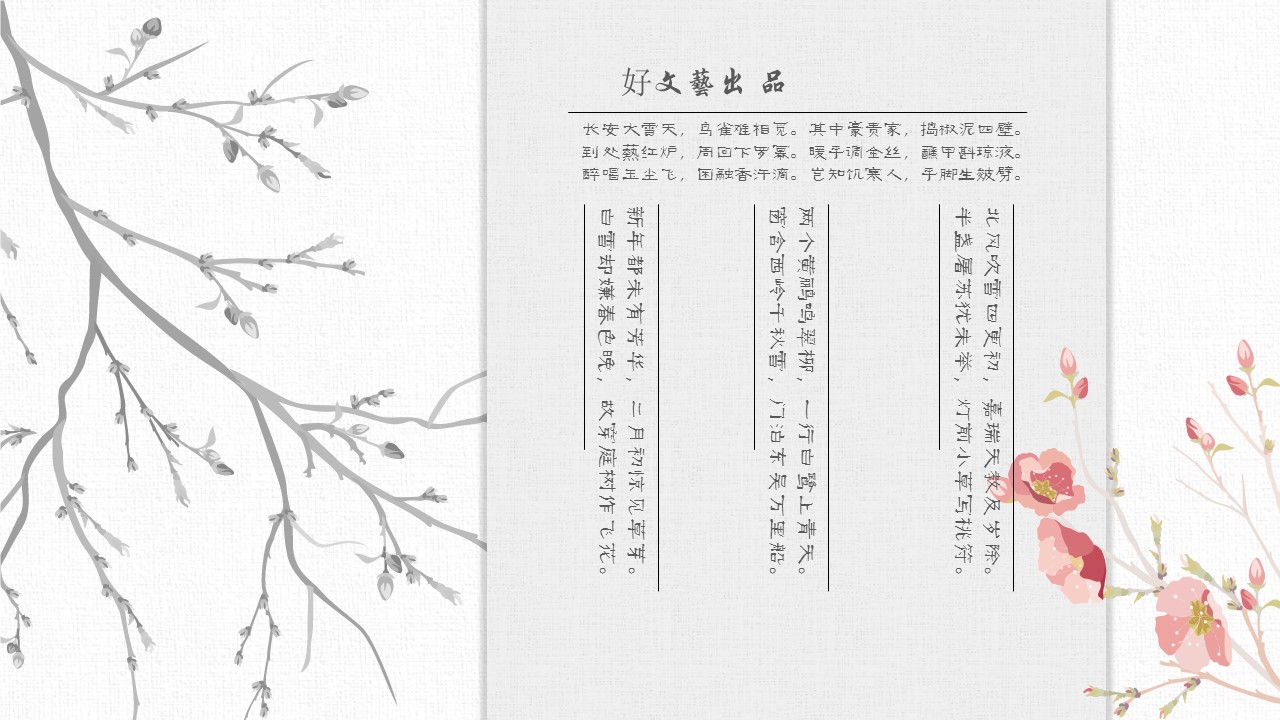 好文藝出品
长安大雪天，鸟雀难相觅。其中豪贵家，捣椒泥四壁。
到处爇红炉，周回下罗幂。暖手调金丝，蘸甲斟琼液。
醉唱玉尘飞，困融香汗滴。岂知饥寒人，手脚生皴劈。
北风吹雪四更初，嘉瑞天教及岁除。
半盏屠苏犹未举，灯前小草写桃符。
两个黄鹂鸣翠柳，一行白鹭上青天。
窗含西岭千秋雪，门泊东吴万里船。
新年都未有芳华，二月初惊见草芽。
白雪却嫌春色晚，故穿庭树作飞花。